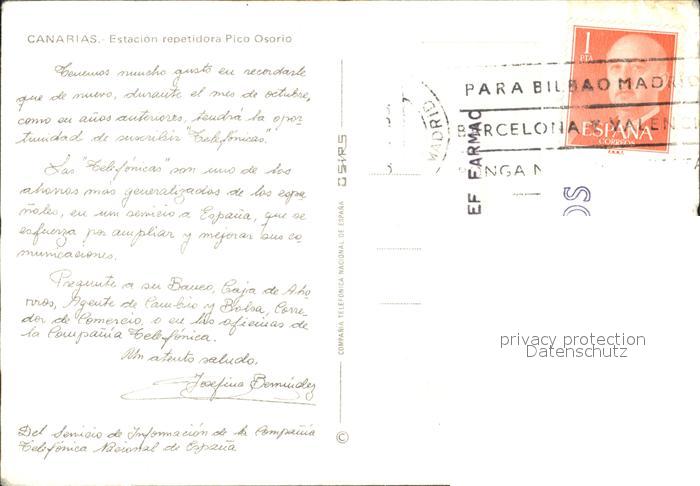 CANARIAS.- Estación repetidora Pico Osorio
Tenemos mucho gusto en recordarle
que de nuevo, durante el mes de octubre,
como en años anteriores, tendrá la opor-
tunidad de suscribir "Telefónicas".
Las "Telefónicas" son uno de los
ahorros más generalizados de los espa-
ñoles, en un servicio a España, que se
esfuerza por ampliar y mejorar sus co-
municaciones.
Pregunte a su Banco, Caja de Aho-
rros, Agente de Cambio y Bolsa, Corre-
dor de Comercio, o en las oficinas de
la Compañía Telefónica.
Un atento saludo,
Josefina Bermúdez
Del Servicio de Información de la Compañía
Telefónica Nacional de España
OSIRS
COMPAÑIA TELEFONICA NACIONAL DE ESPAÑA
©
MADRID
PARA BILBAO MADRI
BARCELONA Y VALENC
ONGA N
EF FARMAC
OS
1
PTA
ESPAÑA
CORREOS
privacy protection
Datenschutz